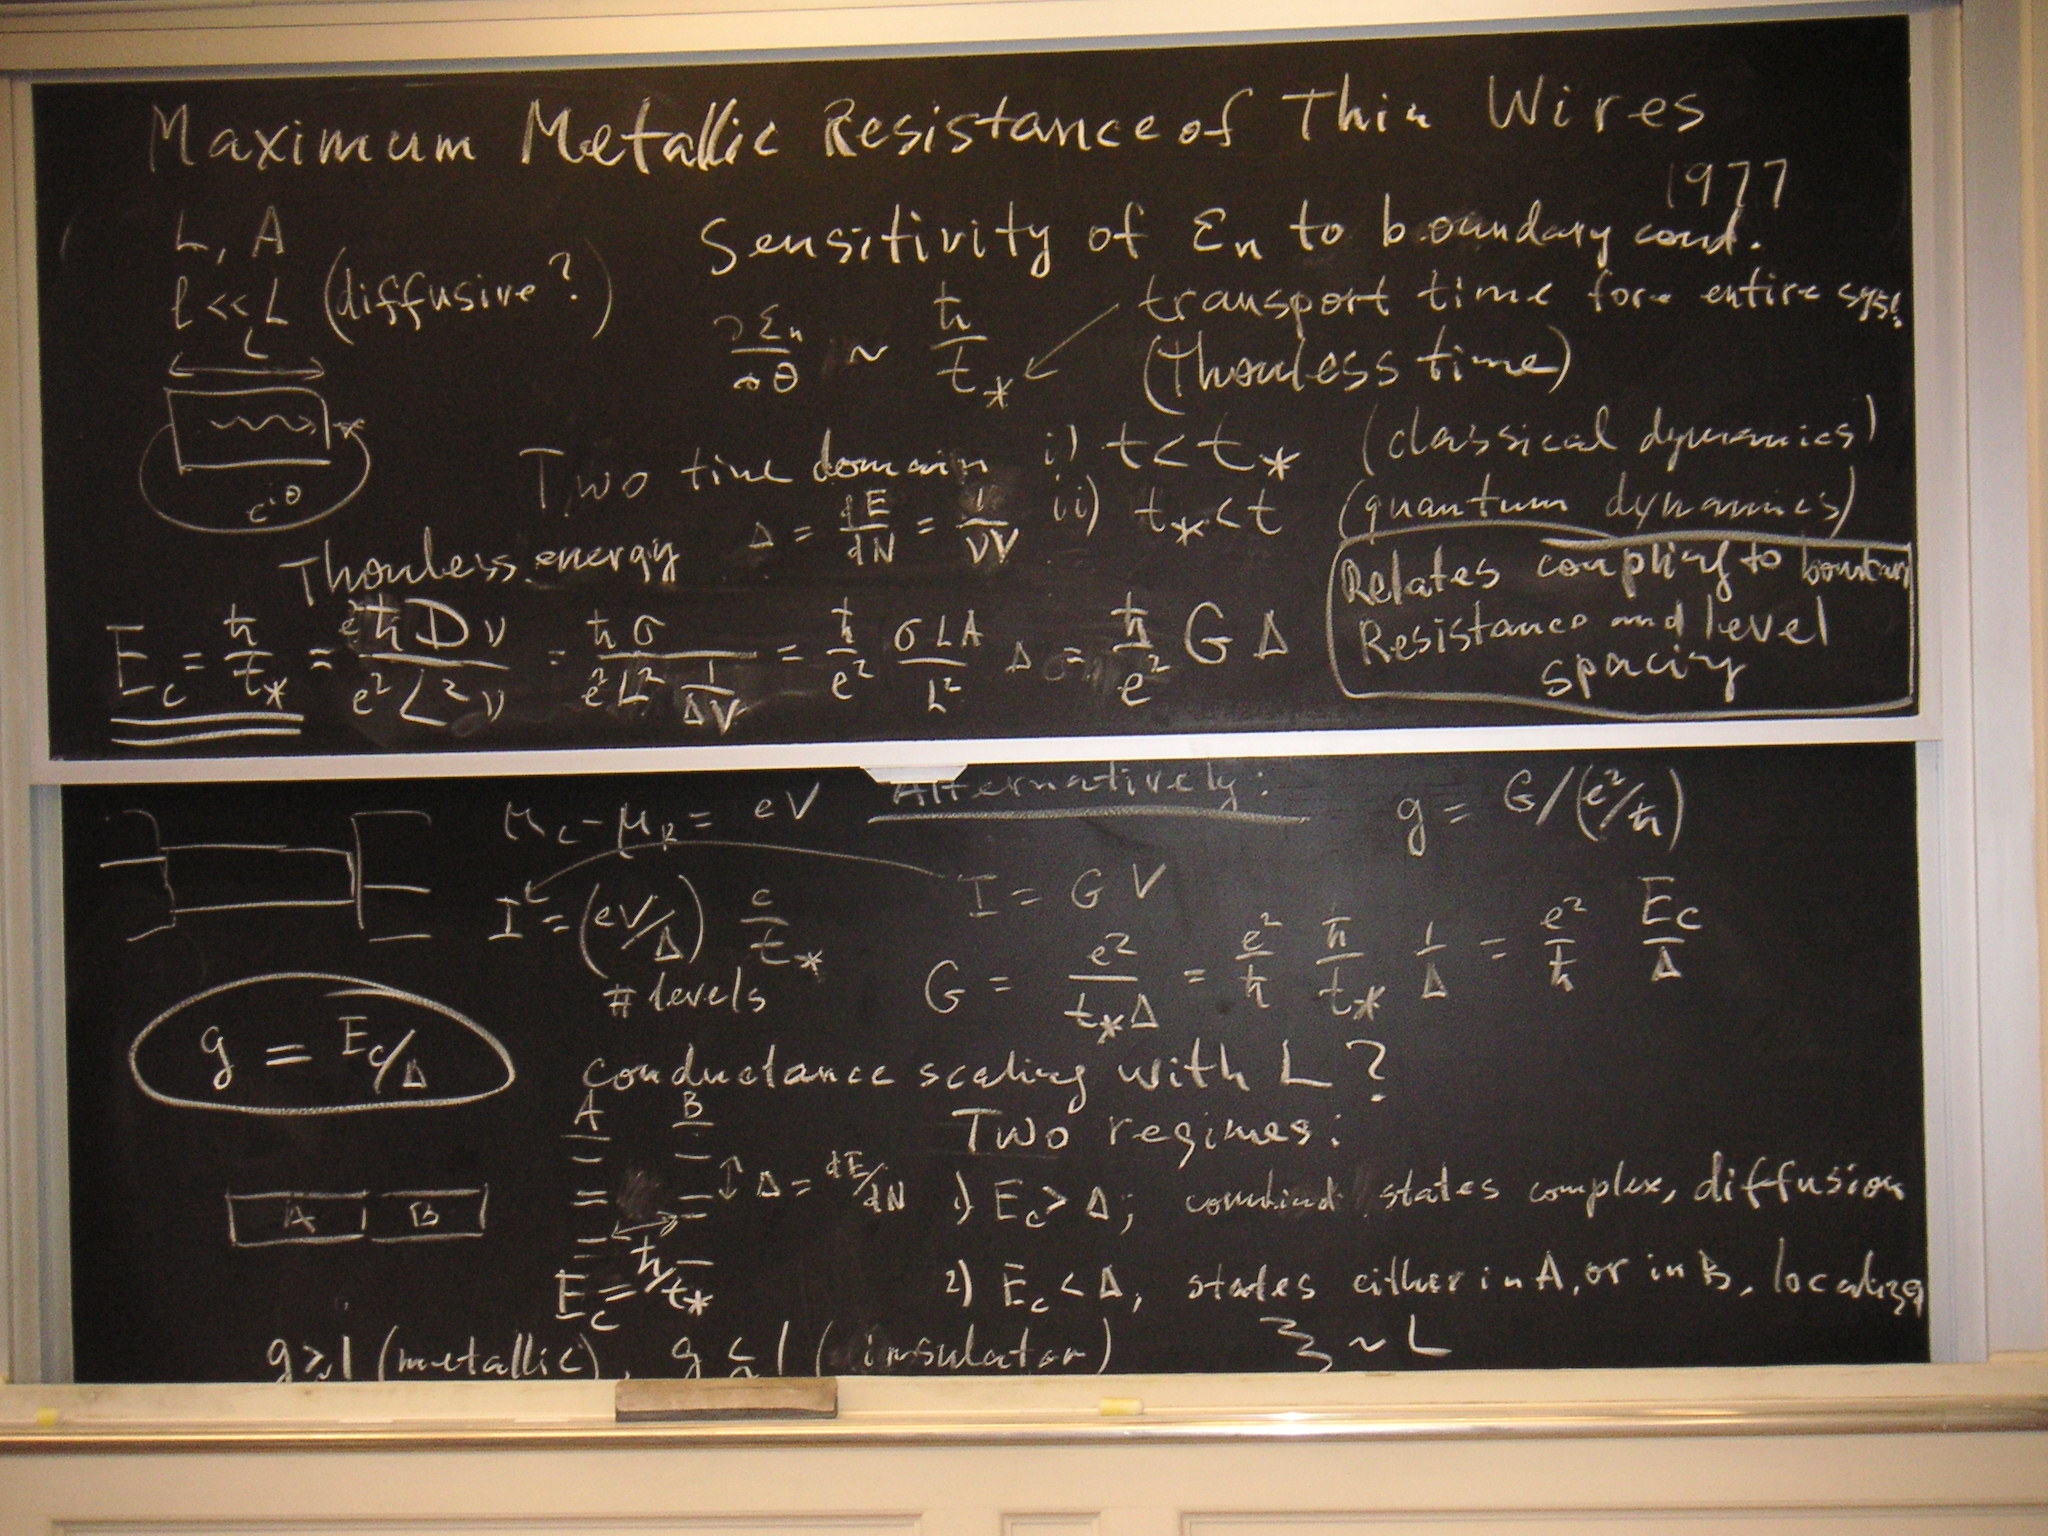 Maximum Metallic Resistance of Thin Wires
1977
L, A
l << L (diffusive?)
L
e^{iθ}
Sensitivity of ε_n to boundary cond.
∂ε_n/∂θ ~ ħ/t_* ← transport time for entire syst.
(Thouless time)
Two time domain i) t < t_* (classical dynamics)
ii) t_* < t (quantum dynamics)
Δ = dE/dN = 1/νV
Thouless energy
E_c = ħ/t_* = e²ħDν/e²L²ν = ħσ/(e²L² 1/ΔV) = ħ/e² σLA/L² Δ = ħ/e² G Δ
Relates coupling to boundary
Resistance and level
spacing
μ_L - μ_R = eV
Alternatively:
g = G/(e²/ħ)
I = (eV/Δ) e/t_*
# levels
I = GV
G = e²/(t_*Δ) = e²/ħ ħ/t_* 1/Δ = e²/ħ E_c/Δ
g = E_c/Δ
conductance scaling with L?
A B
Two regimes:
Δ = dE/dN
1) E_c > Δ; combined states complex, diffusion
A B
E_c = ħ/t_*
2) E_c < Δ, states either in A, or in B,
g ≳ 1 (metallic), g ≲ 1 (insulator)
ξ ~ L